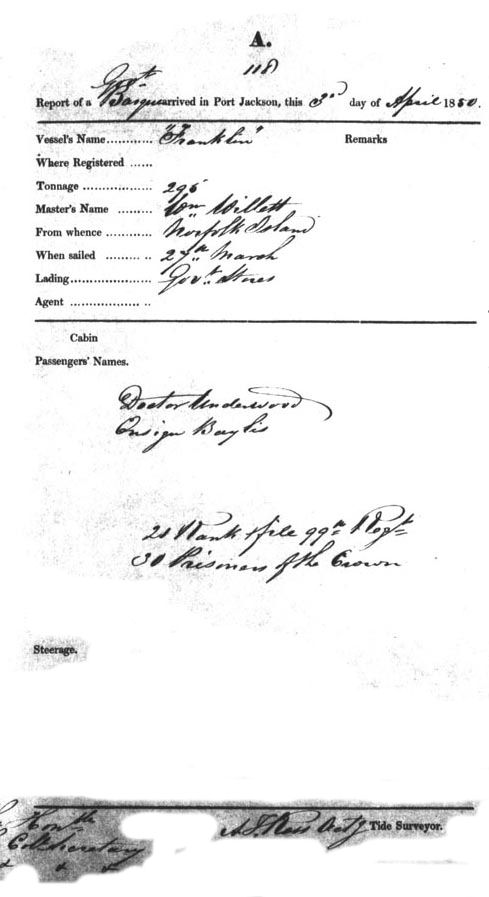 A.
118
Govt
Report of a Barque arrived in Port Jackson, this 3rd day of April 1850.
Vessel's Name............ "Franklin" Remarks
Where Registered ......
Tonnage .................. 296
Master's Name ......... Wm Willett
From whence ............ Norfolk Island
When sailed ......... .. 27th March
Lading..................... Govt. Stores
Agent .................. ..
Cabin
Passengers' Names.
Doctor Underwood
Ensign Baylis
21 Rank & file 99th Regt
30 Prisoners of the Crown
Steerage.
Honble
Col Secretary
& &
Tide Surveyor.